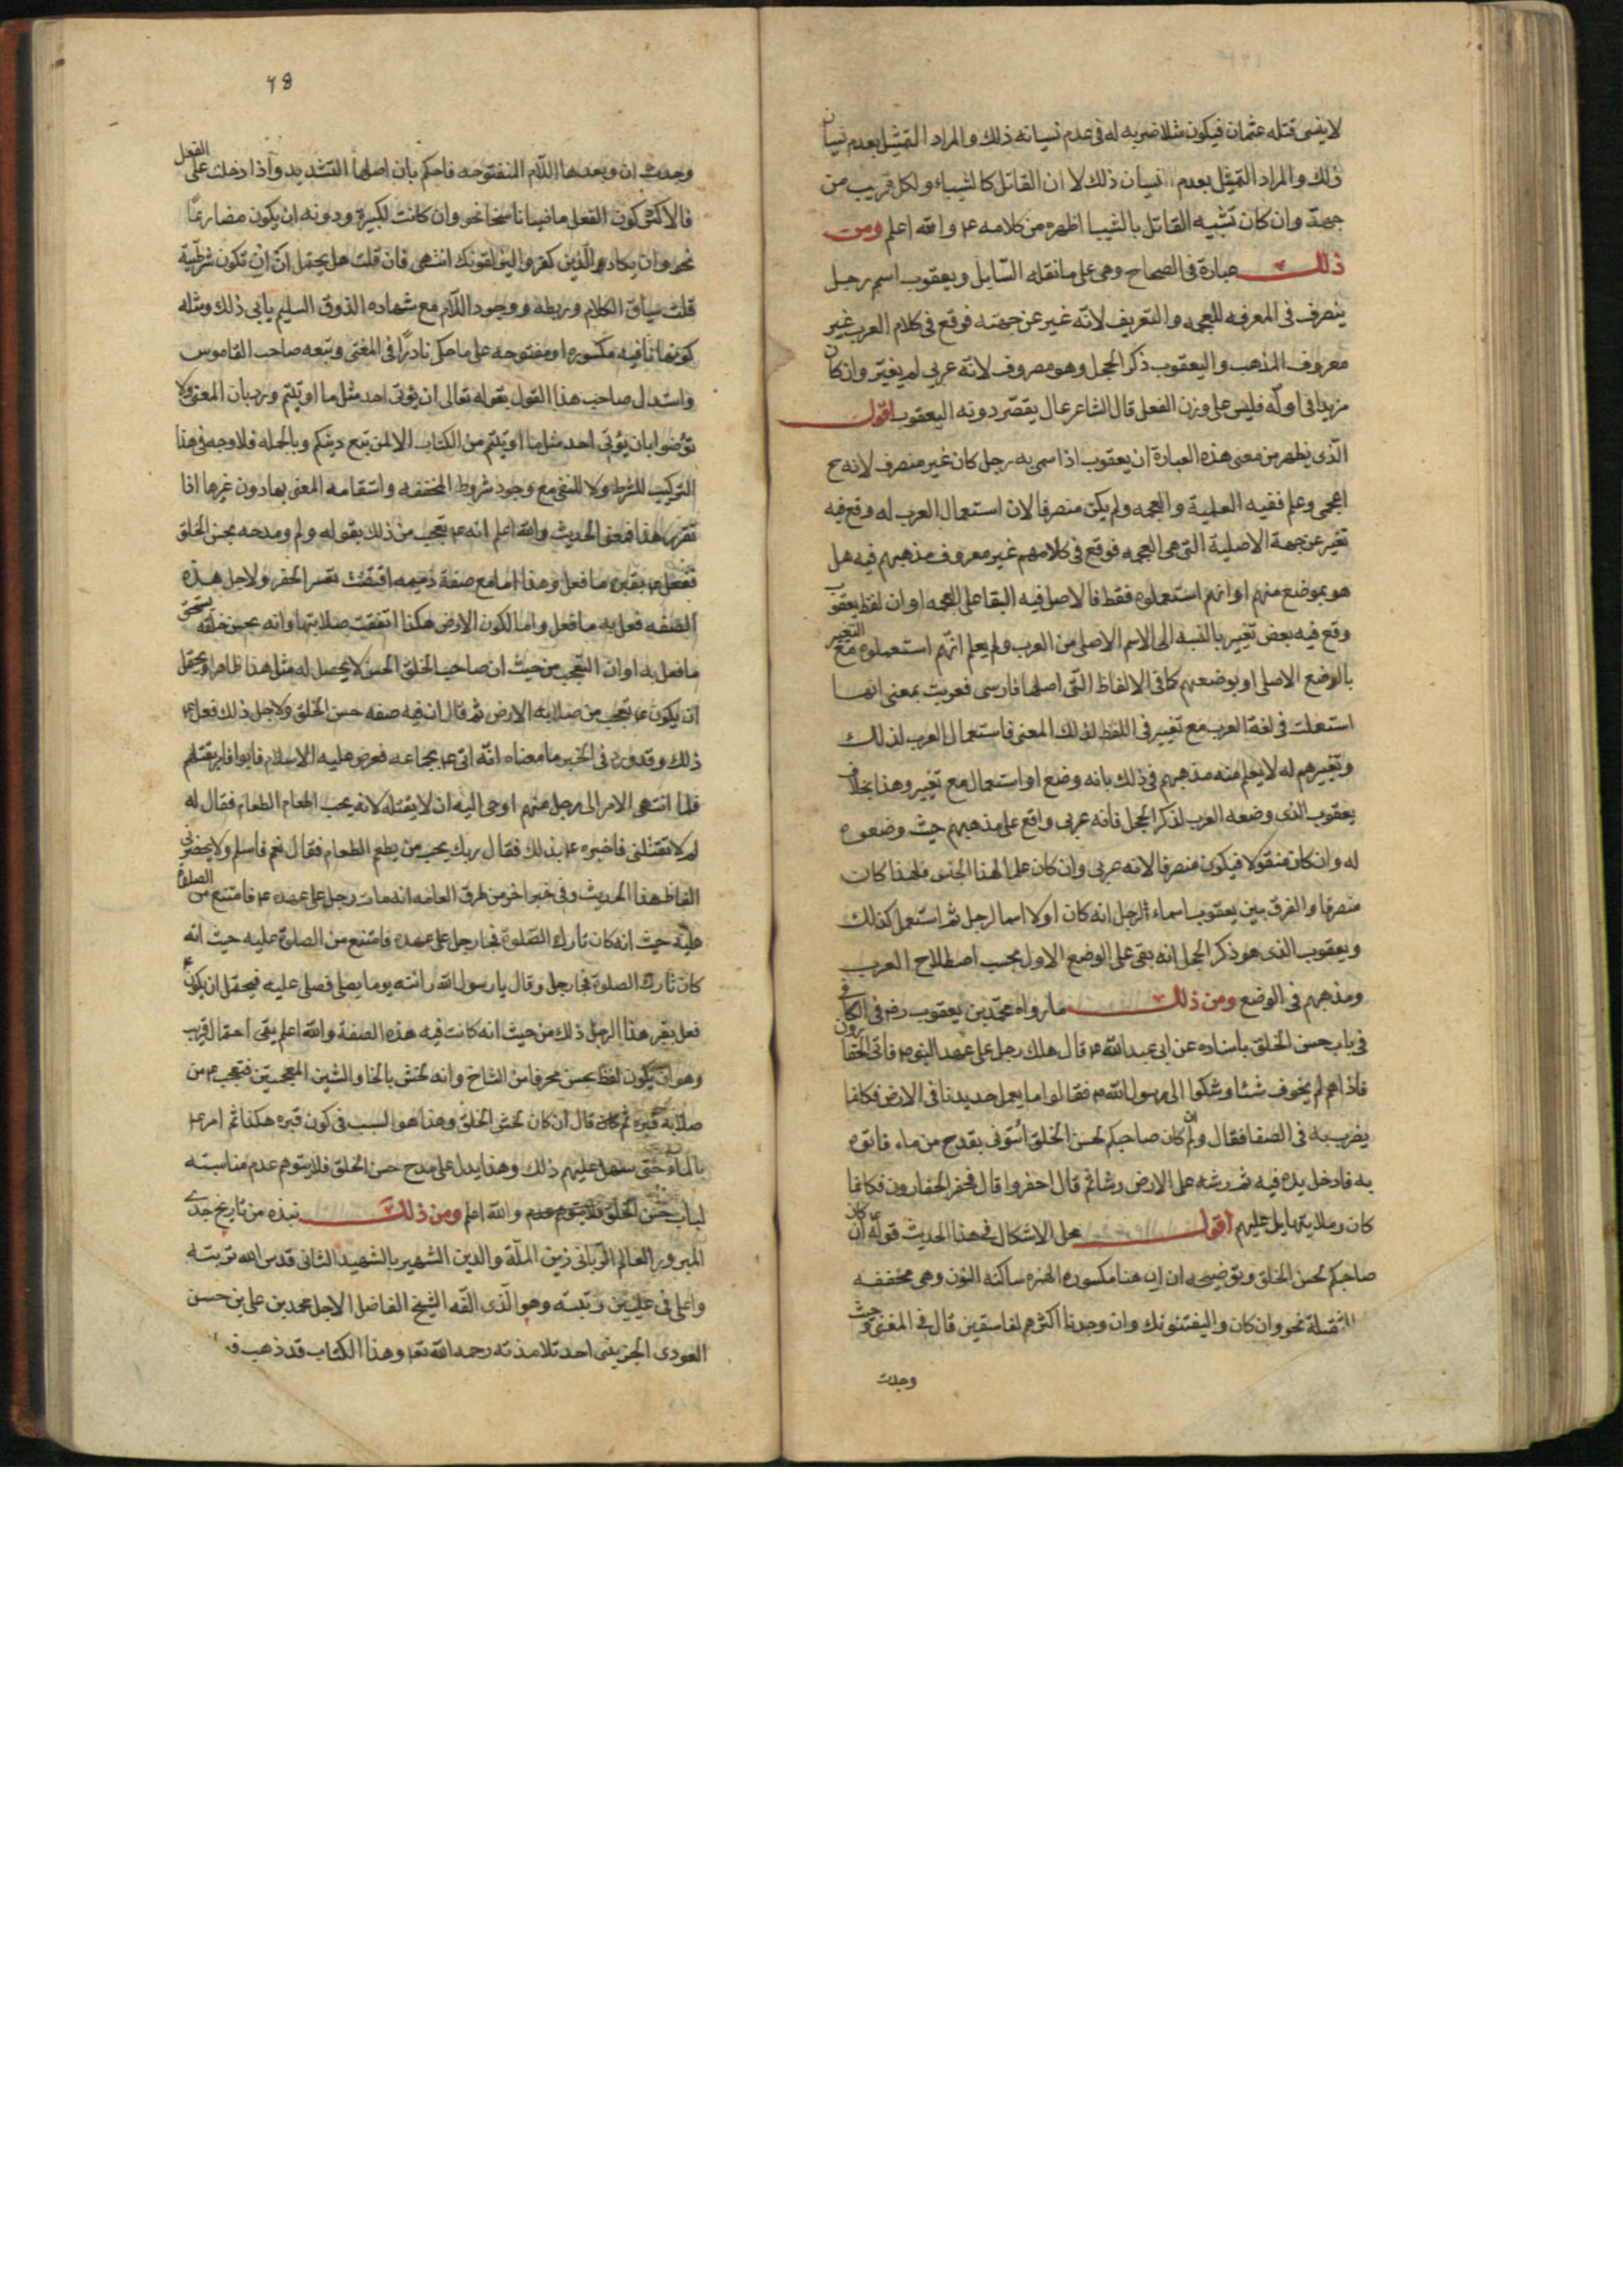 لا ينسى قتله عثمان فيكون مثلا ضربه له فى عدم نسيانه ذلك والمراد التمثيل بعدم نسيان
ذلك والمراد التمثيل بعدم نسيان ذلك لا ان القاتل كالشيباء ولكل قريب من
جهة وان كان تشبيه القاتل بالشيبا اظهر من كلامه ع والله اعلم ومن
ذلك عبارة فى الصحاح وهى على ما نقله السّايل ويعقوب اسم رجل
ينصرف فى المعرفه للعجمه والتعريف لانّه غير عن جهته فوقع فى كلام العرب غير
معروف المذهب واليعقوب ذكر الحجل وهو مصروف لانه عربى لم يغيّر وان كان
مزيدا فى اوله فليس على وزن الفعل قال الشاعر عال يقصّر دونه اليعقوب اقول
الّذى يظهر من معنى هذه العبارة ان يعقوب اذا سمى به رجل كان غير منصرف لانه ح
اعجمى وعلم ففيه العلمية والعجمه ولم يكن منصرفا لان استعمال العرب له وقع فيه
تغير عن جهة الاصلية التى هى العجمه فوقع فى كلامهم غير معروف مذهبهم فيه هل
هو بوضع منهم او انهم استعملوه فقط فالاصل فيه البقا على العجمه او ان لفظ يعقوب
وقع فيه بعض تغيير بالنسبه الى الاسم الاصلى من العرب ولم يعلم انّهم استعملوه مع التغيير
بالوضع الاصلى او بوضعهم كما فى الالفاظ التّى اصلها فارسى فعربت بمعنى انها
استعملت فى لغة العرب مع تغيير فى اللفظ لذلك المعنى فاستعمال العرب لذلك
وتغييرهم له لا يعلم منه مذهبهم فى ذلك بانه وضع او استعمال مع تغيير وهذا بخلاف
يعقوب الذى وضعه العرب لذكر الحجل فانه عربى واقع على مذهبهم حيث وضعوه
له وان كان منقولا فيكون منصرفا لانه عربى وان كان علما لهذا الجنس فلهذا كان
منصرفا والفرق بين يعقوب اسماء الرجل انه كان اولا اسما لرجل ثم استعمل كذلك
ويعقوب الذى هو ذكر الحجل انه بقى على الوضع الاول بحسب اصطلاح العرب
ومذهبهم فى الوضع ومن ذلك ما رواه محمّد بن يعقوب ره فى الكافى
فى باب حسن الخلق باسناده عن ابى عبد الله ع قال هلك رجل على عهد النبى ص فاتى الحفارون
فاذا هم لم يحفروا شئا وشكوا الى رسول الله ص فقالوا ما يعمل حديدنا فى الارض فكانما
يضرب به فى الصفا فقال ولم ان كان صاحبكم لحسن الخلق ائتونى بقدح من ماء فاتوه
به فادخل يده فيه ثم رشه على الارض رشا ثم قال احفروا قال فحفر الحفارون فكانما
كان رملا يتهايل عليهم اقول محل الاشكال فى هذا الحديث قوله ع ان كان
صاحبكم لحسن الخلق وتوضيحه ان ان هنا مكسوره الهمزه ساكنه النون وهى مخففه
المثقلة نحو وان كان واليفتنونك وان وجدنا اكثرهم لفاسقين قال فى المغنى وحيث
وجدت
وجدت ان وبعدها اللّام المفتوحه فاحكم بان اصلها التشديد واذا دخلت على الفعل
فالاكثر كون الفعل ماضيا ناسخا نحو وان كانت لكبيرة ودونه ان يكون مضارعًا
نحو وان يكاد الّذين كفروا ليزلقونك انتهى فان قلت هل يحتمل انّ ان تكون شرطيّة
قلت سياق الكلام وربطه ووجود اللّام مع شهاده الذوق السليم يابى ذلك ومثله
كونها نافيه مكسوره او مفتوحه على ما حكى نادرًا فى المغنى وتبعه صاحب القاموس
واستدل صاحب هذا القول بقوله تعالى ان يؤتى احد مثل ما اوتيتم ورد بان المعنى ولا
تؤمنوا بان يؤتى احد مثل ما اوتيتم من الكتاب الا لمن تبع دينكم وبالجمله فلا وجه فى هذا
التركيب للشرط ولا للنفى مع وجود شروط المخففه واستقامه المعنى بها دون غيرها اذا
تقرر هذا فمعنى الحديث والله اعلم انه ع تعجب من ذلك بقوله ولم ومدحه بحسن الخلق
ففعل بقبره ما فعل وهذا اما مع صفة ذميمه اقتضت تعسر الحفر ولاجل هذه
الصفه فعل به ما فعل واما لكون الارض هكذا اتفقت صلابتها وانه بحسن خلقه يستحق
ما فعل به او ان التعجب من حيث ان صاحب الخلق الحسن لا يحصل له مثل هذا ظاهرا ويحتمل
ان يكون ع تعجب من صلابه الارض ثم قال ان فيه صفه حسن الخلق ولاجل ذلك فعل ع
ذلك وقد ورد فى الخبر ما معناه انّه اتى ع بجماعه فعرض عليه الاسلام فابوا فامر بقتلهم
فلما انتهى الامر الى رجل منهم اوحى اليه ان لا يقتله لانه يحب اطعام الطعام فقال له
لم لا تقتلنى فاخبره ع بذلك فقال ربك يحب من يطعم الطعام فقال نعم فاسلم ولا يحضرنى
الفاظ هذا الحديث وفى خبر اخر من طرق العامه انه مات رجل على عهده ع فامتنع من الصلوة
عليه حيث انه كان تارك الصّلوة فجا رجل على عهده فامتنع من الصلوة عليه حيث انه
كان تارك الصلوة فجا رجل وقال يا رسول الله رائته يوما يصلى فصلى عليه فيحتمل ان يكون ع
فعل بقبر هذا الرجل ذلك من حيث انه كانت فيه هذه الصفة والله اعلم بقى احتمال قريب
وهو ان يكون لفظ بحسن محرفا من النساخ وانه لخشن بالخا والشين المعجمتين فتعجب ع من
صلابة قبره ثم قال ان كان لخشن الخلق وهذا هو السبب فى كون قبره هكذا ثم امر ع
بالماء حتى سهل عليهم ذلك وهذا يدل على مدح حسن الخلق فلا يتوهم عدم مناسبته
لباب حسن الخلق والله اعلم ومن ذلك نبذه من تاريخ جدى
المبرور العالم الرّبانى زين الملّة والدين الشهير بالشهيد الثانى قدس الله تربته
واعلى فى عليين رتبته وهو الّذى الّفه الشيخ الفاضل الاجل محمد بن على بن حسن
العودى الجزينى احد تلامذته رحمه الله تعا وهذا الكتاب قد ذهب